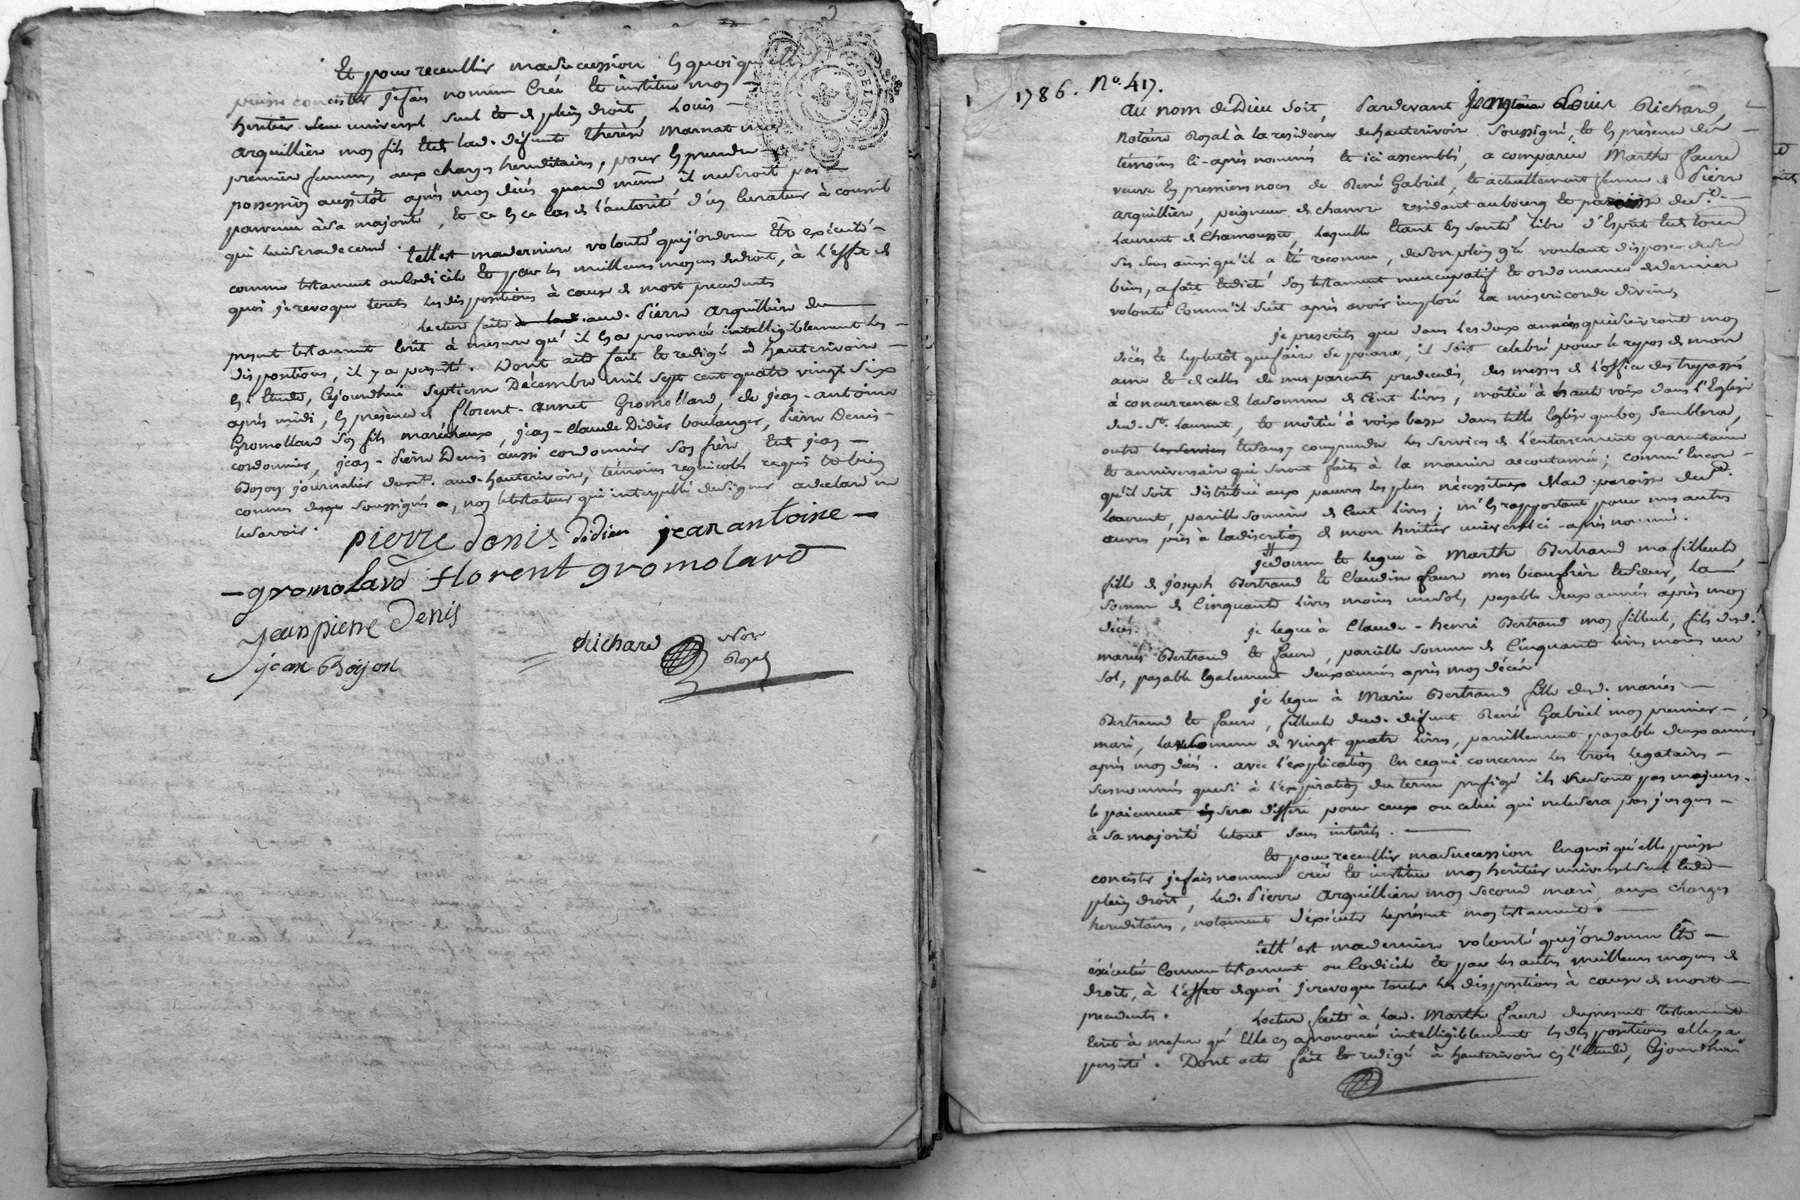 Et pour recueullir ma succession en quoi qu'elle
puisse concister je fais nomme créé et institue mon
heritier seul universel seul et de plein droit, Louis
arquillière mon fils et de lad. defunte Therèse Marnat ma
premiere femme, aux charges hereditaires, pour en prendre
possession aussitôt après mon décés quand même il ne seroit pas
parvenu à sa majorité, et ce en ce cas de l'autorité d'un curateur à conseil
qui lui sera decerné. telle est ma derniere volonté que j'ordonne être exécuté
comme testament ou codicile et par les meilleurs moyens de droit, à l'effet de
quoi je revoque touts les dispositions à cause de mort precedents
Lecture faite aud. Pierre arquillière du
present testament écrit à mesure qu'il en a prononcé intelligiblement les
dispositions, il y a persisté. Dont acte fait et redigé à hauterivoire
en l'étude, cejourdhui septieme Décembre mil sept cent quatre vingt six
après midi, en présence de florent-annet Gromollard, de jean-antoine
Gromollard son fils maréchaux, jean-Claude Didier boulanger, Pierre Denis
cordonnier, jean-Pierre Denis aussi cordonnier son frère et de jean
Boyon journalier demt. aud. hauterivoire, témoins regnicoles requis et bien
connus de qui soussignés, non le testateur qui interpellé de signer a declaré ne
le savoir.
pierre denis didier jean antoine
gromolard florent gromolard
jean pierre denis
jean Boyon
Richard Nore
Royal
1786. No. 417.
au nom de Dieu soit, Pardevant Jean Louis Richard,
notaire Royal à la residence de hauterivoire soussigné, et en présence des
témoins ci-après nommés et ici assemblés, a comparue Marthe faure
veuve en premieres noces de René Gabriel, et actuellement femme de Pierre
arquillière, peigneur de chanvre résidant au bourg et paroisse de St.
Laurent de Chamousset, laquelle étant en santé libre d'esprit et de tous
ses sens ainsi qu'il a été reconnu, de son plein gré voulant disposer de ses
biens, a fait et dicté son testament nuncupatif et ordonnance de derniere
volonté comm'il suit après avoir imploré la misericorde divine,
je prescrits que dans les deux années qui suivront mon
décès et le plutôt que faire se pourra, il soit celebré pour le repos de mon
ame et de celles de mes parents predecedés, des messes de l'office des trepassés
à concurrence de la somme de cent livres, moitié à haute voix dans l'Eglise
dud. St. Laurent, et moitié à voix basse dans telle Eglise que bon semblera,
outre et sans y comprendre les services de l'enterrement quarantaine
et anniversaire qui seront faits à la maniere accoutumée; comm'encor
qu'il soit distribué aux pauvres les plus nécessiteux de lad. paroisse de St.
Laurent, pareille somme de cent livres; m'en rapportant pour mes autres
œuvres pies à la discretion de mon heritier universel ci-après nommé.
je donne et legue à Marthe Bertrand ma filleule,
fille de joseph Bertrand et Claudine faure mes beaufrère et sœur, la
somme de cinquante livres moins un sol, payable deux années après mon
décés. je legue à Claude-henri Bertrand mon filleul, fils desd.
mariés Bertrand et faure, pareille somme de cinquante livres moins un
sol, payable egalement deux années après mon décès.
je legue à Marie Bertrand fille desd. mariés
Bertrand et faure, filleule dud. défunt René Gabriel mon premier
mari, la somme de vingt quatre livres, pareillement payable deux années
après mon décés. avec l'explication en ce qui concerne les trois legataires
susnommés que si à l'expiration du terme prefigé ils ne sont pas majeurs
le paiement en sera differé pour ceux ou celui qui ne le sera pas jusques
à sa majorité le tout sans interêts.
et pour recueullir ma succession en quoi qu'elle puisse
concister je fais nomme créé et institue mon heritier universel seul et de
plein droit, led. Pierre arquillière mon second mari aux charges
hereditaires, notament d'exécuter le présent mon testament.
telle est ma derniere volonté que j'ordonne être
éxécutée comme testament ou codicile et par les autres meilleurs moyens de
droit, à l'effet de quoi je revoque toutes les dispositions à cause de mort
precedents. Lecture faite à lad. Marthe faure du present testament
écrit à mesure qu'elle en a prononcé intelligiblement les dispositions elle y a
persisté. Dont acte fait et redigé à hauterivoire en l'étude, cejourdhui